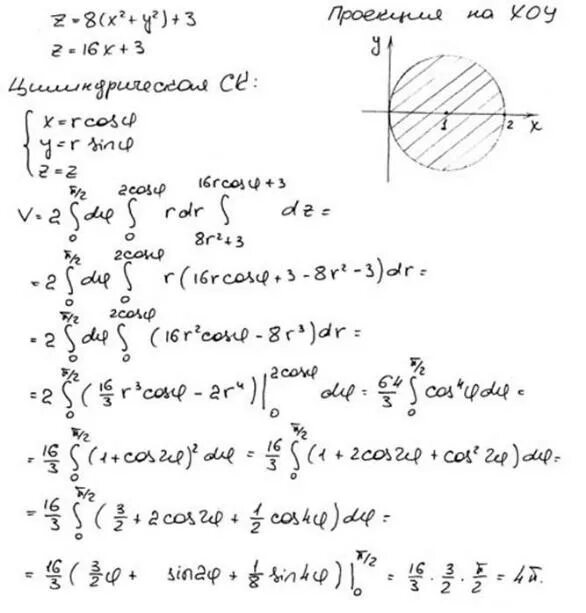 z = 8(x² + y²) + 3
Проекция на XOY
z = 16x + 3
Цилиндрическая СК:
{ x = r cosφ
y = r sinφ
z = z
y
1
2
x
V = 2 ∫₀^{π/2} dφ ∫₀^{2cosφ} r dr ∫_{8r²+3}^{16rcosφ+3} dz =
= 2 ∫₀^{π/2} dφ ∫₀^{2cosφ} r(16rcosφ + 3 - 8r² - 3)dr =
= 2 ∫₀^{π/2} dφ ∫₀^{2cosφ} (16r²cosφ - 8r³)dr =
= 2 ∫₀^{π/2} (16/3 r³cosφ - 2r⁴) |₀^{2cosφ} dφ = 64/3 ∫₀^{π/2} cos⁴φdφ =
= 16/3 ∫₀^{π/2} (1 + cos2φ)² dφ = 16/3 ∫₀^{π/2} (1 + 2cos2φ + cos² 2φ)dφ =
= 16/3 ∫₀^{π/2} (3/2 + 2cos2φ + 1/2 cos4φ)dφ =
= 16/3 (3/2 φ + sin2φ + 1/8 sin4φ) |₀^{π/2} = 16/3 · 3/2 · π/2 = 4π.